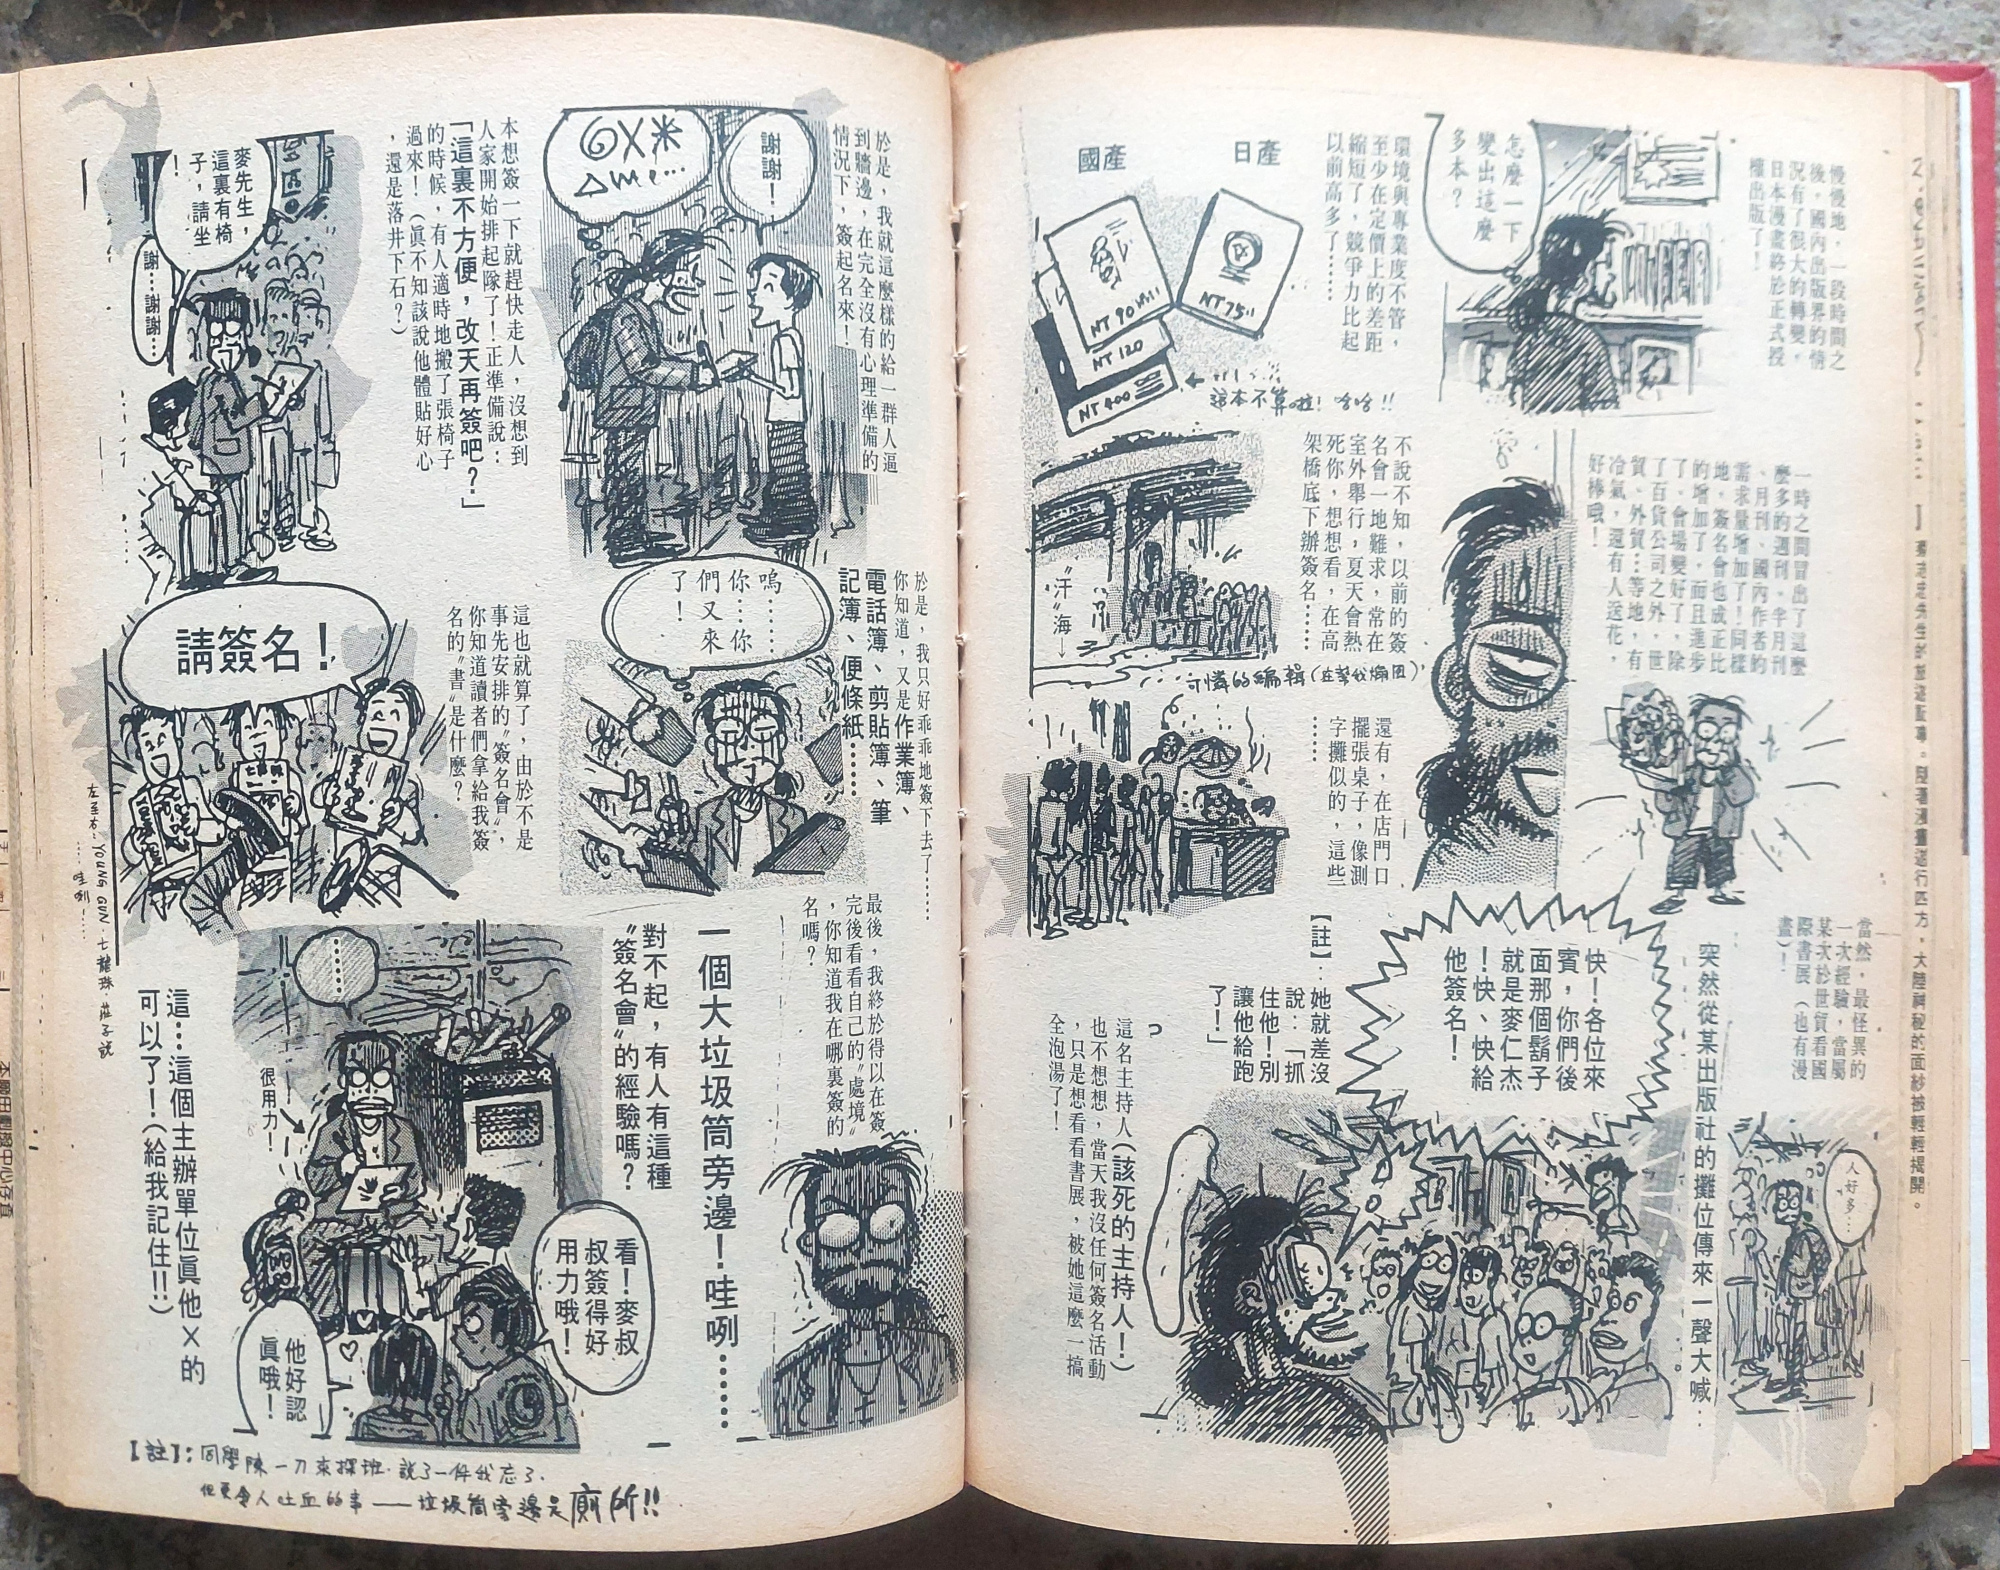 慢慢地，一段時間之
後，國內出版界的情
況有了很大的轉變，
日本漫畫終於正式授
權出版了！
怎麼一下
變出這麼
多本？
環境與專業度不管，
至少在定價上的差距
縮短了，競爭力比起
以前高多了……
日產
國產
NT 75
NT 90
NT 120
NT 400
這本不算啦！哈哈!!
一時之間冒出了這麼
麼多的週刊、半月刊
、月刊、國內作者的
需求量增加了！同樣
地，簽名會也成正比
的增加了，而且進步
了，會場變好了，除
了百貨公司之外，世
貿、外貿…等地，有
冷氣，還有人送花，
好捧哦！
不說不知，以前的簽
名會一地難求，常在
室外舉行，夏天會熱
死你，想想看，在高
架橋底下辦簽名……
〝汗〞海→
可憐的編輯（在幫我搧風）
還有，在店門口
擺張桌子，像測
字攤似的，這些
……
當然，最怪異的
一次經驗，當屬
某次於世貿看國
際書展（也有漫
畫）！
人好多…
突然從某出版社的攤位傳來一聲大喊：
快！各位來
賓，你們後
面那個鬍子
就是麥仁杰
！快、快給
他簽名！
【註】：她就差沒
說：「抓
住他！別
讓他給跑
了！」
?
這名主持人（該死的主持人！）
也不想想，當天我沒任何簽名活動
，只是想看看書展，被她這麼一搞
全泡湯了！
於是，我就這麼樣的給一群人逼
到牆邊，在完全沒有心理準備的
情況下，簽起名來！
謝謝！
@X米
△me…
本想簽一下就趕快走人，沒想到
人家開始排起隊了！正準備說：
「這裏不方便，改天再簽吧？」
的時候，有人適時地搬了張椅子
過來！（真不知該說他體貼好心
，還是落井下石？）
麥先生，
這裏有椅
子，請坐
！
謝…謝謝…
於是，我只好乖乖地簽下去了……
你知道，又是作業簿、
電話簿、剪貼簿、筆
記簿、便條紙……
嗚……
你……你
們又來
了！
這也就算了，由於不是
事先安排的〝簽名會〞，
你知道讀者們拿給我簽
名的〝書〞是什麼？
請簽名！
左至右：YOUNG GUN．七龍珠．莊子說
……哇咧！…
最後，我終於得以在簽
完後看看自己的〝處境〞
，你知道我在哪裏簽的
名嗎？
一個大垃圾筒旁邊！哇咧……
對不起，有人有這種
〝簽名會〞的經驗嗎？
……
很用力！
看！麥叔
叔簽得好
用力哦！
他好認
真哦！
這…這個主辦單位真他×的
可以了！（給我記住!!）
【註】：同學陳一刀來探班．說了一件我忘了．
但更令人吐血的事——垃圾筒旁邊是廁所!!